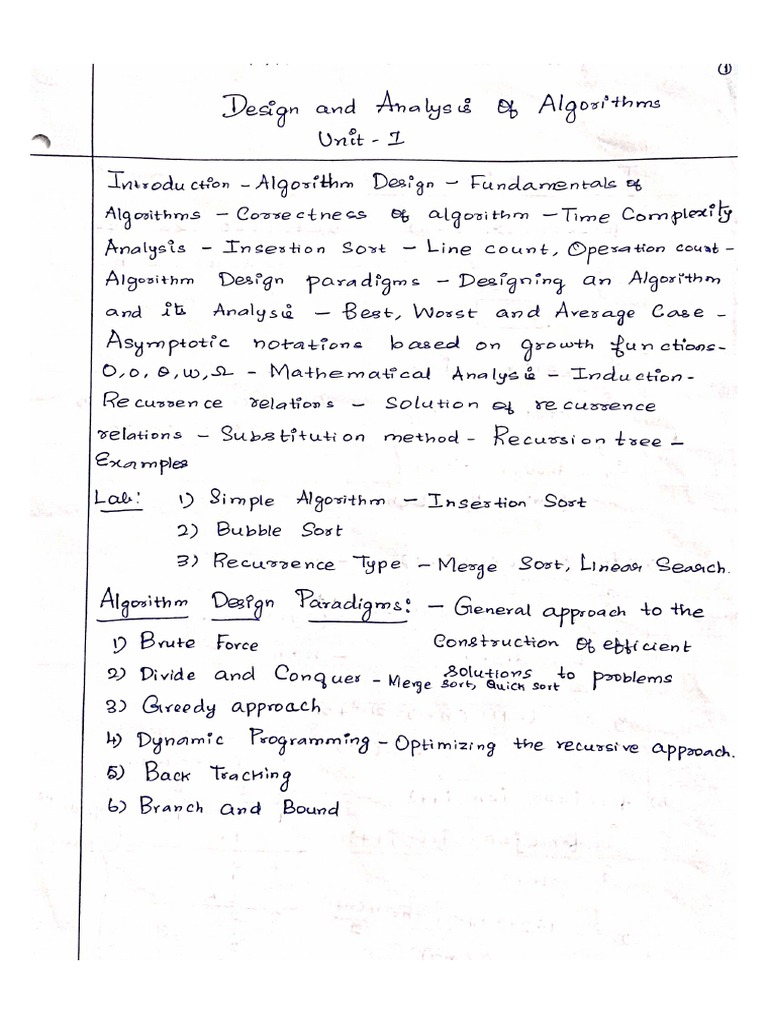 (1)
Design and Analysis of Algorithms
Unit - I
Introduction - Algorithm Design - Fundamentals of
Algorithms - Correctness of algorithm - Time Complexity
Analysis - Insertion Sort - Line count, Operation count -
Algorithm Design paradigms - Designing an Algorithm
and its Analysis - Best, Worst and Average Case -
Asymptotic notations based on growth functions-
O, o, θ, ω, Ω - Mathematical Analysis - Induction -
Recurrence relations - Solution of recurrence
relations - Substitution method - Recursion tree -
Examples
Lab: 1) Simple Algorithm - Insertion Sort
2) Bubble Sort
3) Recurrence Type - Merge Sort, Linear Search.
Algorithm Design Paradigms: - General approach to the
1) Brute Force Construction of efficient
2) Divide and Conquer - Merge Sort, Quick Sort solutions to problems
3) Greedy approach
4) Dynamic Programming - Optimizing the recursive approach.
5) Back Tracking
6) Branch and Bound